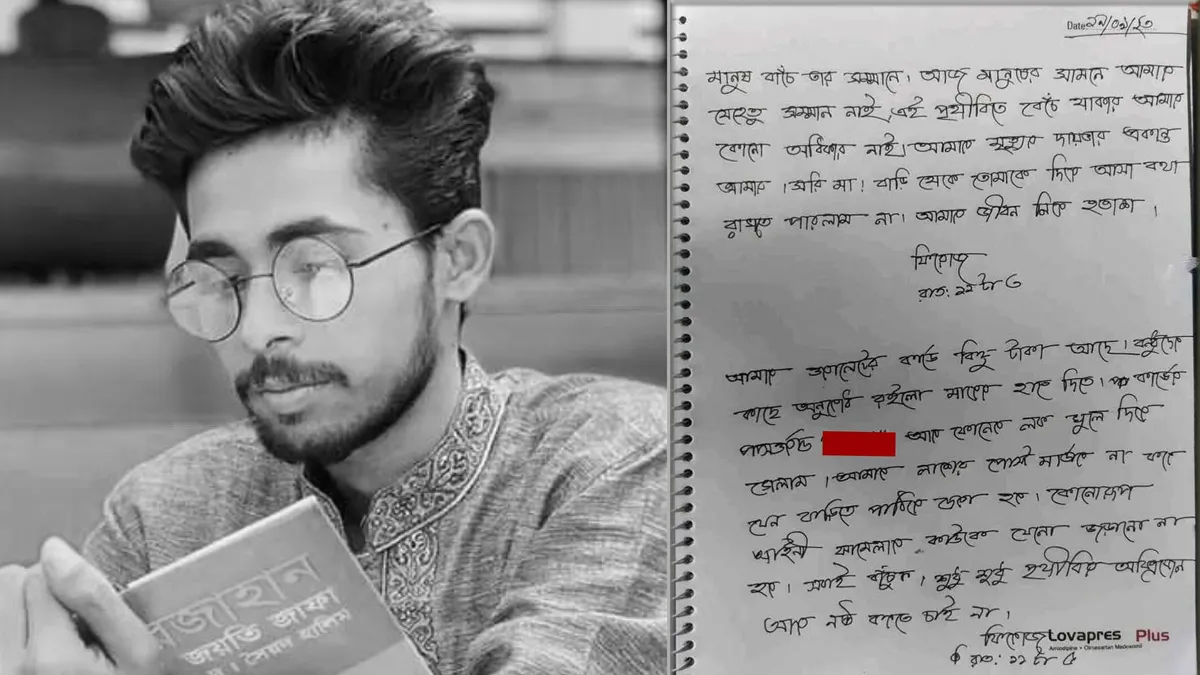 জাহান
জয়তি জাফা
সৈয়দ হালিম
Date: ১৯/০৯/২৩
মানুষ বাঁচে তার সম্মানে। আজ মানুষের সামনে আমার
যেহেতু সম্মান নাই, এই পৃথীবিতে বেঁচে থাকার আমার
কোনো অধিকার নাই। আমার মৃত্যুর দায়ভার একান্ত
আমার। সরি মা! বাড়ি থেকে তোমাকে দিয়ে আসা কথা
রাখতে পারলাম না। আমার জীবন নিয়ে হতাশ।
ফিরোজ
রাত: ১১ টা ৩
আমার ওয়ালেটের কার্ডে কিছু টাকা আছে। বন্ধুদের
কাছে অনুরোধ রইলো মায়ের হাতে দিতে। কার্ডের
পাসওয়ার্ড আর ফোনের লক খুলে দিয়ে
গেলাম। আমার লাশের পোস্ট মার্টেম না করে
যেন বাড়িতে পাঠিয়ে দেওয়া হয়। কোনোরূপ
আইনী ঝামেলায় কাউকে যেনো জড়ানো না
হয়। সবাই বাঁচুক। শুধু শুধু পৃথীবির অক্সিজেন
আর নষ্ট করতে চাই না।
ফিরোজ
রাত: ১১ টা ৫
Lovapres Plus
Amlodipine + Olmesartan Medoxomil